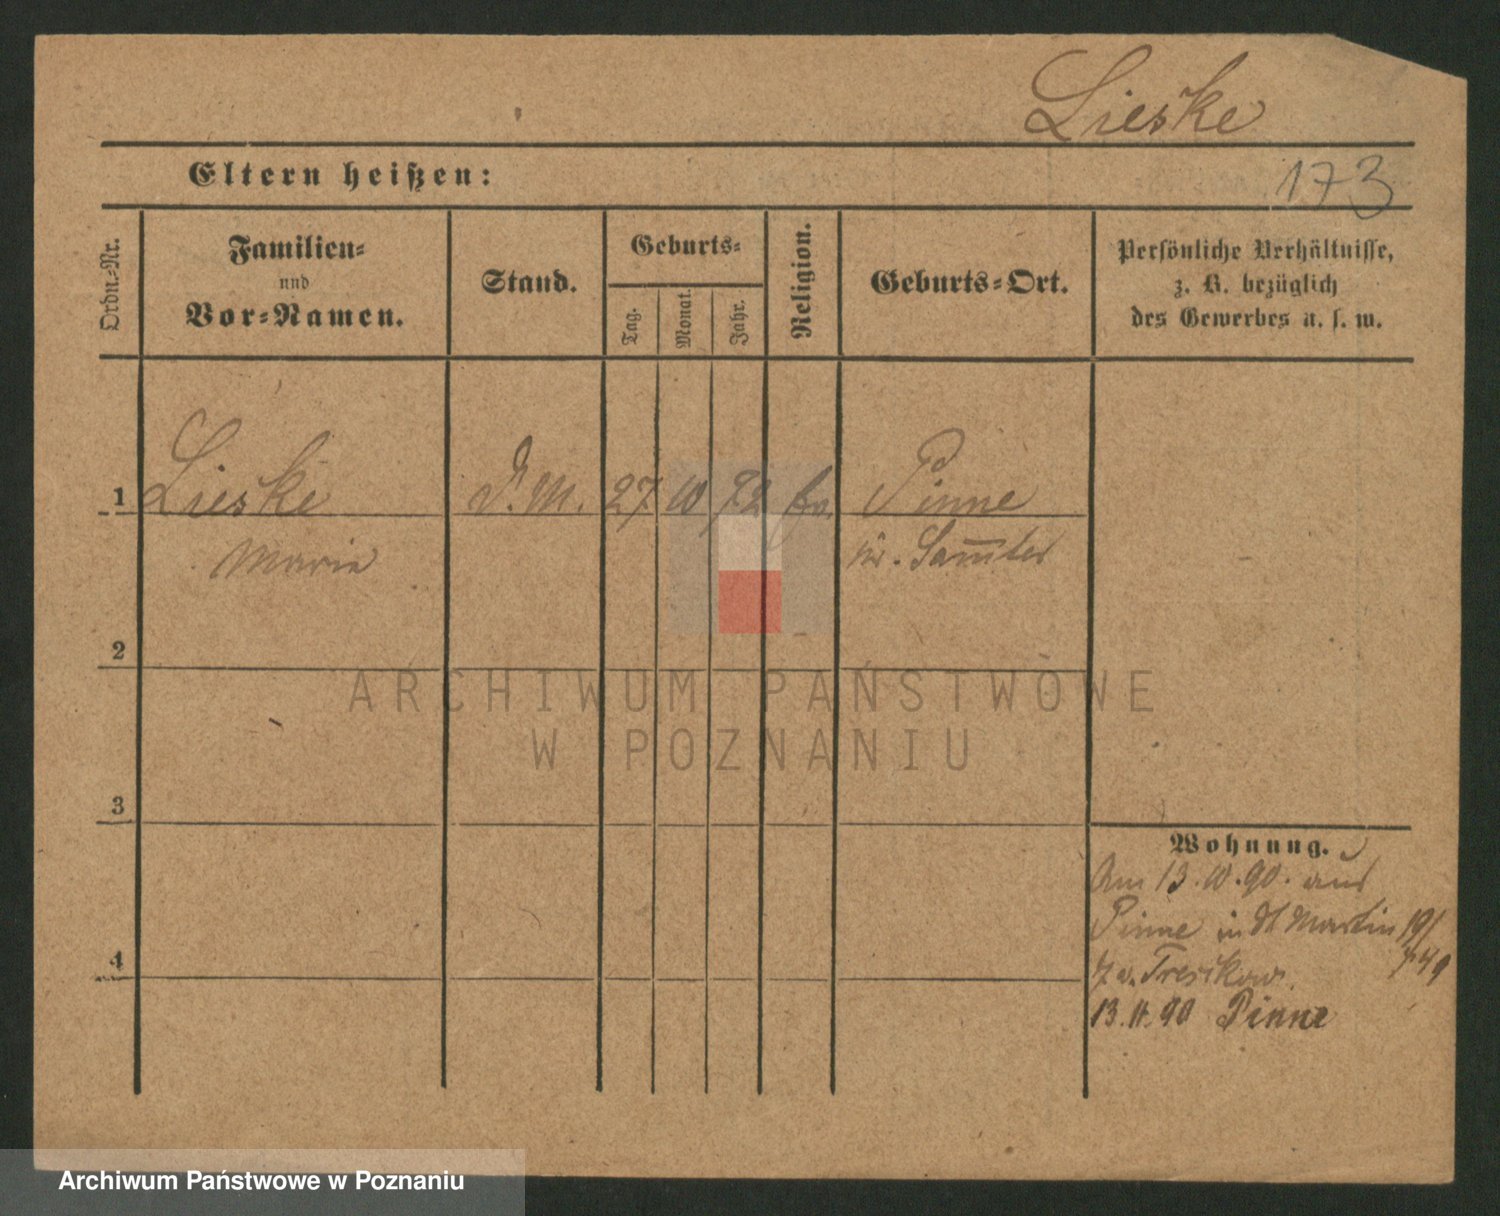 Lieske
Eltern heißen:
173
Ordn.-Nr.
Familien-
und
Vor-Namen.
Stand.
Geburts-
Tag.
Monat.
Jahr.
Religion.
Geburts-Ort.
Persönliche Verhältnisse,
z. B. bezüglich
des Gewerbes u. s. w.
1 Lieske D.M. 27 10 72 Pinne
Marie Kr. Samter
2
ARCHIWUM PAŃSTWOWE
W POZNANIU
3
Wohnung.
Am 13.10.90. aus
Pinne in St Martin
v. Treskow.
4
13.11.90 Pinne
Archiwum Państwowe w Poznaniu